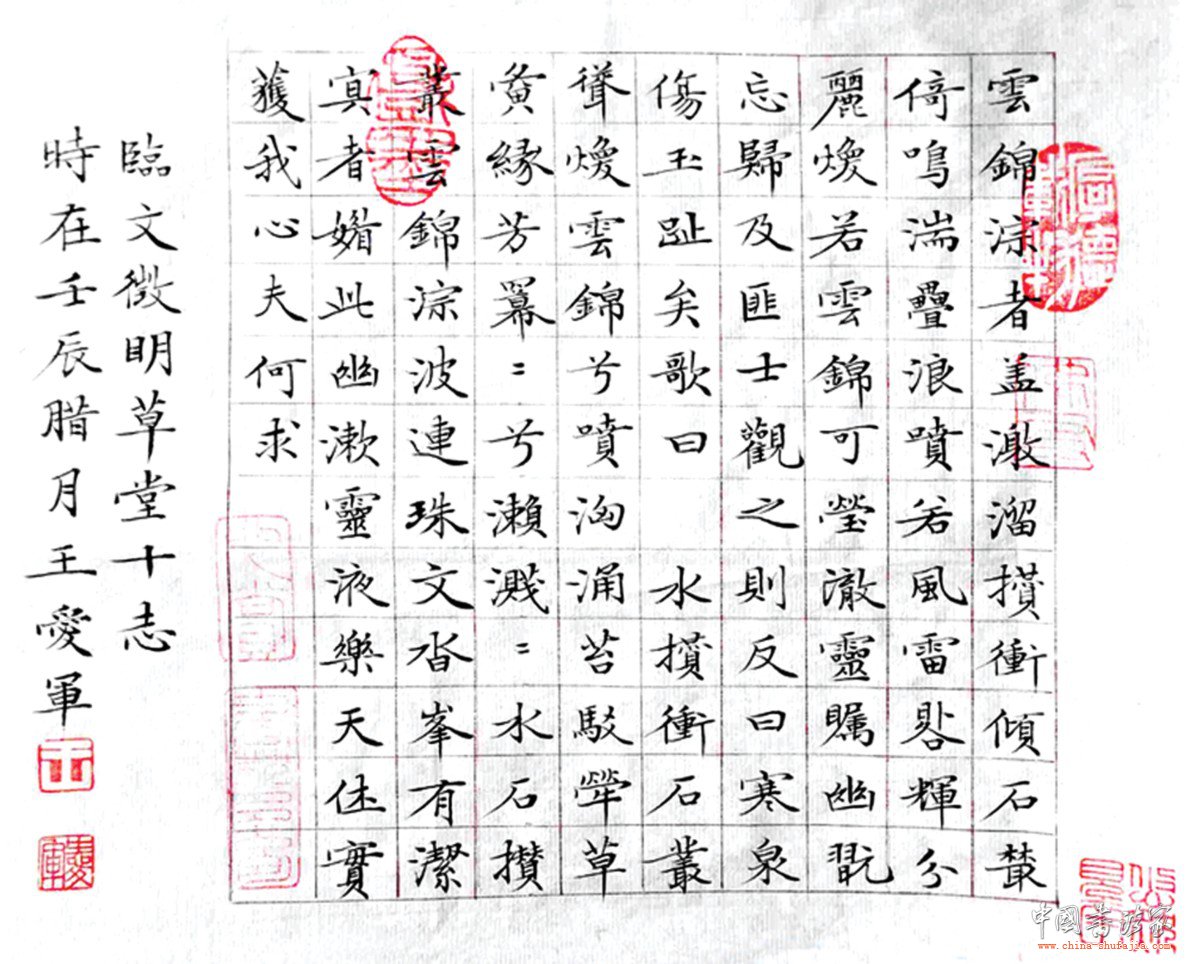 雲錦淙者盖激溜攅衝傾石叢
倚鳴湍疊浪噴若風雷輝分
麗煥若雲錦可瑩澈靈矚幽翫
忘歸及匪士觀之則反曰寒泉
傷玉趾矣歌曰 水攅衝石叢
聳煥雲錦兮噴洶涌苔駁犖草
夤緣芳羃〻兮瀨濺〻水石攢
叢雲錦淙波連珠文沓峯有潔
冥者媚此幽漱靈液樂天休實
獲我心夫何求
臨文徵明草堂十志
時在壬辰腊月王愛軍
王
愛軍
中国书法家
www.china-shufajia.com